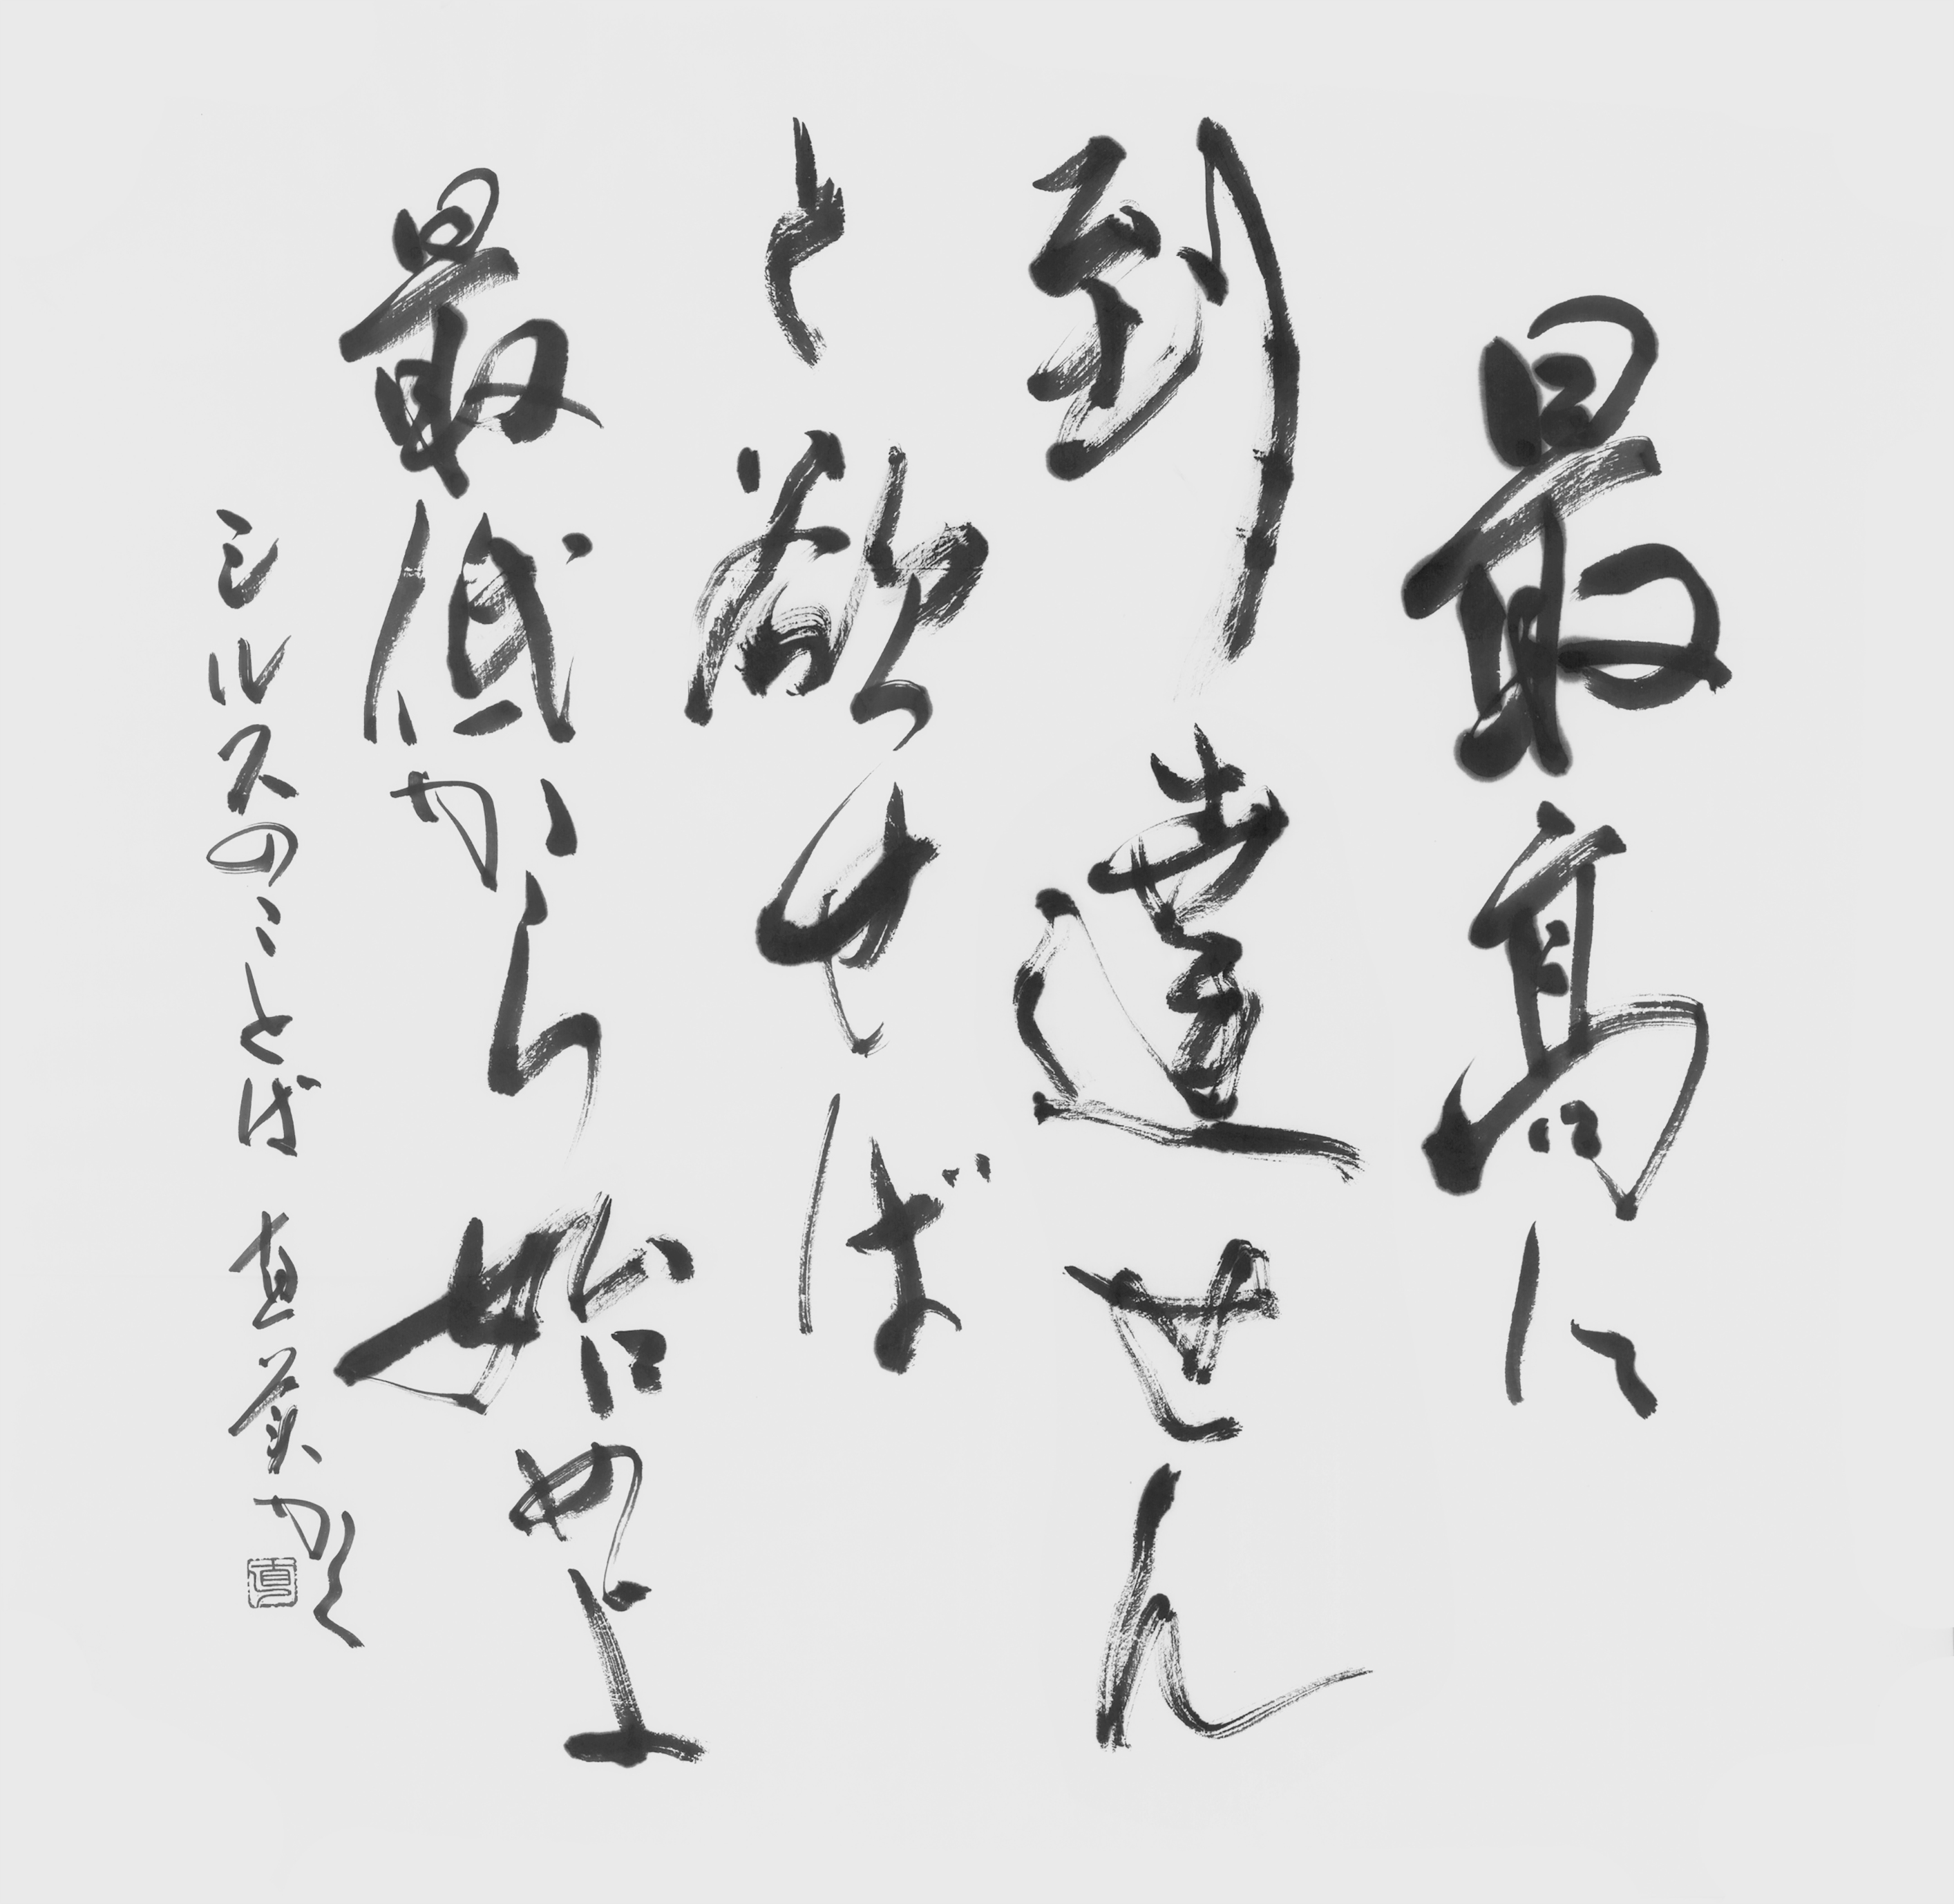 最高に
到達せん
と欲せば
最低から始めよ
シルスのことば 直美かく
直